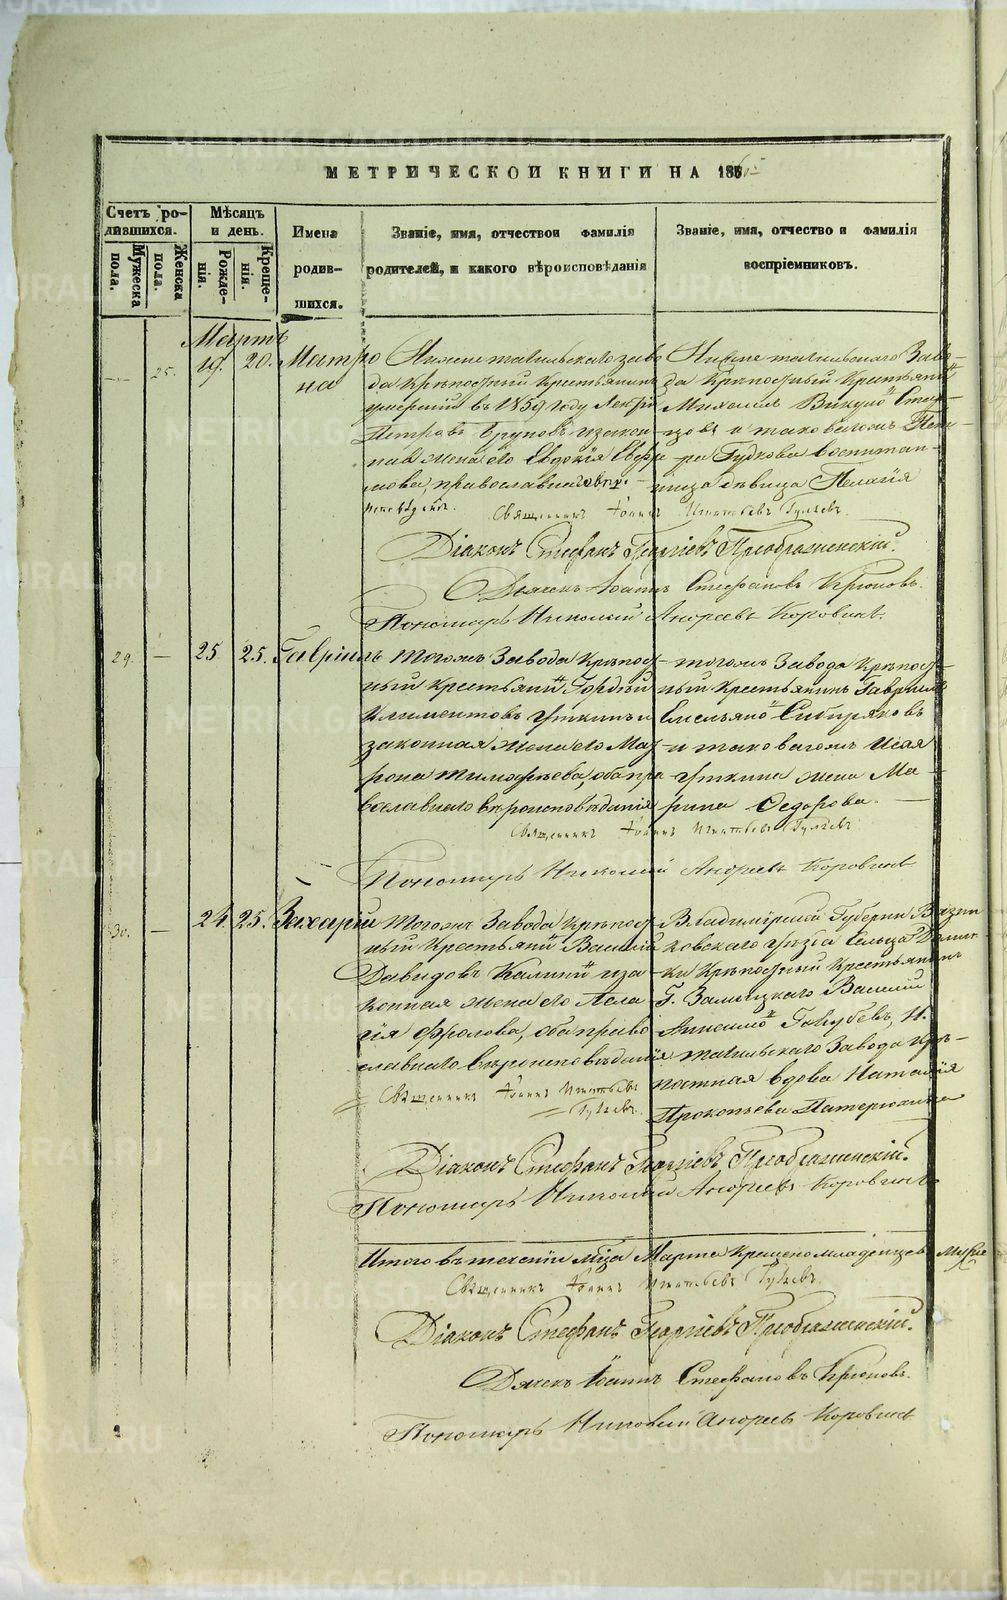 МЕТРИЧЕСКОЙ КНИГИ НА 186
Счетъ ро-
дившихся.
Мужеска
пола.
Женска
пола.
Мѣсяцъ
и день.
Рожде-
нія.
Креще-
нія.
Имена
родив-
шихся.
Званіе, имя, отчество и фамилія
родителей, и какого вѣроисповѣданія
Званіе, имя, отчество и фамилія
воспріемниковъ.
Мартъ
25.
19.
20.
Матро
на
Нижнетагильскаго заво
да Крѣпостный Крестьянинъ
умершій въ 1859 году
Петровъ и закон
ная жена его Евдокія Ефре
мова, православнаго вѣро
исповѣданія.
Нижнетагильскаго Заво-
да Крѣпостный Крестьянинъ
Михаилъ
и таковагожъ Пет-
ра Гудкова воспитан-
ница дѣвица Пелагія
Священникъ Іоаннъ Игнатьевъ
Діаконъ Стефанъ Георгіевъ Преображенскій.
Дьячекъ Іоаннъ Стефановъ Крюковъ.
Пономарь Николай Андреевъ Коровинъ.
29.
25
25.
Гавріилъ
Тогожъ Завода Крѣпост-
ный Крестьянинъ Гордѣй
Климентовъ Уткинъ и
законная жена его Мат-
рона Тимофѣева, оба пра
вославнаго вѣроисповѣданія
Тогожъ Завода Крѣпост-
ный Крестьянинъ Гавріилъ
Емельяновъ Сибиряковъ
и таковагожъ Исая
Уткина жена Ма-
рина Федорова.
Священникъ Іоаннъ Игнатьевъ
Пономарь Николай Андреевъ Коровинъ
30.
24.
25.
Захарій
Тогожъ Завода Крѣпост
ный Крестьянинъ Василій
Давидовъ Калининъ и за
конная жена его Пела
гія Фролова, оба право
славнаго вѣроисповѣданія
Владимірской Губерніи Вязни
ковскаго уѣзда Сельца
ки Крѣпостный Крестьянинъ
Г. Василій
Анисимовъ Голубевъ, Н.
тагильскаго Завода крѣ-
постная вдова Наталія
Прокопьева
Священникъ Іоаннъ Игнатьевъ
Діаконъ Стефанъ Георгіевъ Преображенскій.
Пономарь Николай Андреевъ Коровинъ
Итого въ теченіи мѣсяца Марта Крещено младенцевъ
Священникъ Іоаннъ Игнатьевъ
Діаконъ Стефанъ Георгіевъ Преображенскій.
Дьячекъ Іоаннъ Стефановъ Крюковъ.
Пономарь Николай Андреевъ Коровинъ
METRIKI.GASO-URAL.RU